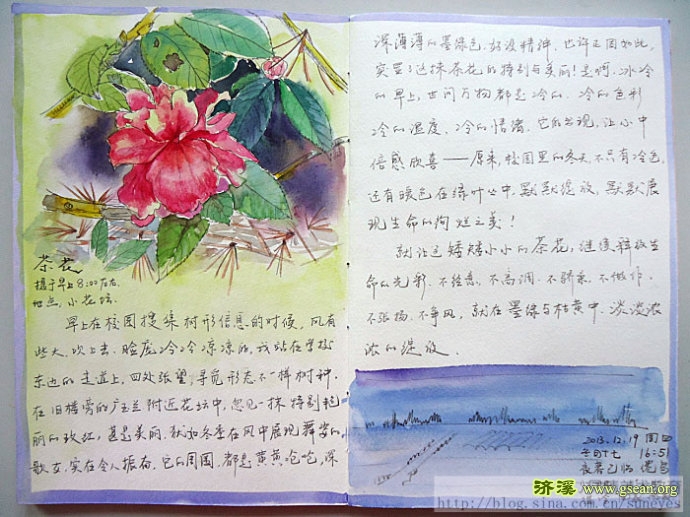 茶花
摄于早上8:00左右
地点:小花坛.
早上在校园搜集树形信息的时候,风有
些大,吹上去,脸庞冷冷凉凉的,我站在学校
东边的走道上,四处张望,寻觅形态不一样树种.
在旧楼旁的广玉兰附近花坛中,忽见一抹特别艳
丽的玫红,甚是美丽.犹如冬季在风中展现舞姿的
歌女,实在令人振奋.它的周围,都是黄黄呛呛,深
深薄薄的墨绿色.好没精神.也许正因如此,
突显了这抹茶花的特别与美丽!是啊.冰冷
的早上,世间万物都是冷的.冷的色彩
冷的温度、冷的情绪.它的出现,让心中
倍感欣喜——原来,校园里的冬天,不只有冷色,
还有暖色在绿叶丛中,默默绽放,默默展
现生命的绚烂之美!
就让这矮矮小小的茶花,继续释放生
命的光彩.不经意、不高调、不骄柔、不做作.
不张扬、不争风,就在墨绿与枯黄中.淡淡浓
浓的绽放.
2013.12.19 周四
16:51
济溪 www.gsean.org
http://blog.sina.com.cn/suneyes